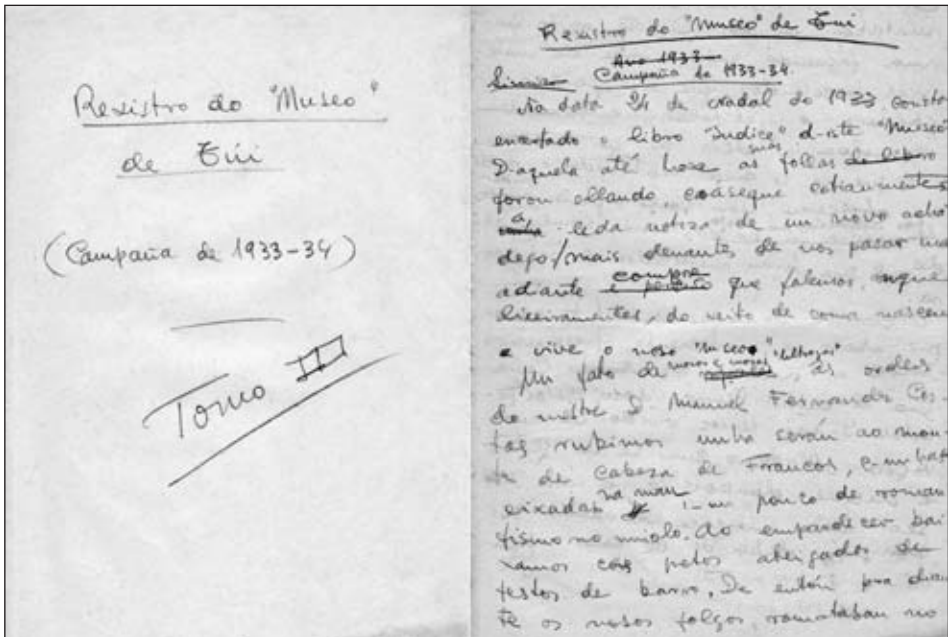 Rexistro do "Museo"
de Túi
(Campaña de 1933-34)
Tomo III
Rexistro do "Museo" de Túi
Ano 1933
Campaña de 1933-34
Na data 24 de de 1933
o libro "Indice" d-iste "Museo"
D-aquela até hoxe as súas follas do libro
foron ollando, cuáseque cotiamente
a leda notiza de un novo acha
dego/mais denantes de nos pasar
adiante compre que falemos,
lixeiramentes, do xeito de coma nasceu
e vive o noso "Museo"
Un fato de mozos e mozas, ás ordes
do mestre D. Manuel Fernández Cos
tas rubimos unha serán ao mon
te de Cabeza de Francos, c-unhas
eixadas na man i-un pouco de roman
tismo no miolo. Ao empardecer, bai
xamos cos petos ateigados de
testos de barro. De entón pra dian
te os nosos folgos, remataban no